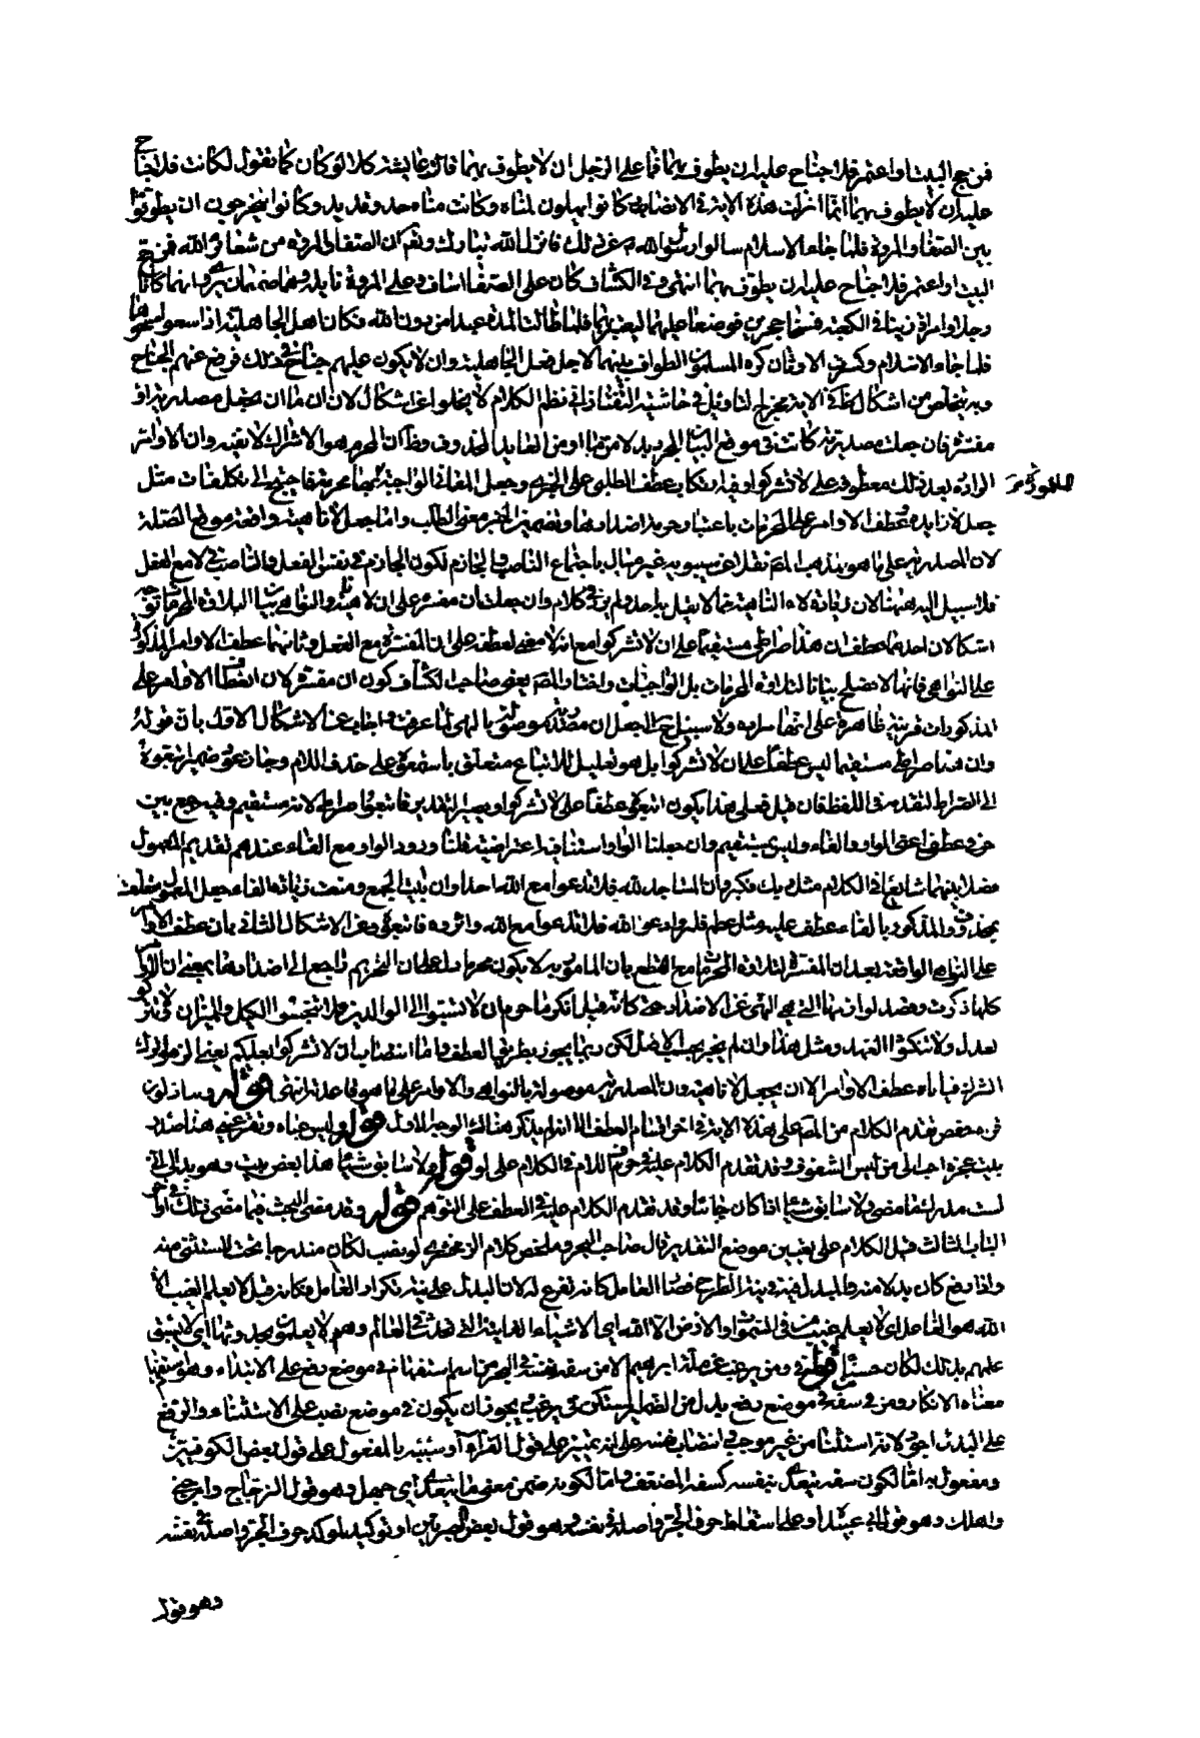 فمن حج البيت او اعتمر فلا جناح عليه ان يطوف بهما فما على الرجل ان لا يطوف بهما قالت عايشة كلا لو كان كما تقول لكانت فلا جناح
عليه ان لا يطوف بهما انما انزلت هذه الاية في الانصار كانوا يهلون لمناة وكانت مناة حذو قديد وكانوا يتحرجون ان يطوفوا
بين الصفا والمروة فلما جاء الاسلام سالوا رسول الله عن ذلك فانزل الله تبارك وتع ان الصفا والمروة من شعائر الله فمن حج
البيت او اعتمر فلا جناح عليه ان يطوف بهما انتهى وفي الكشاف كان على الصفا اساف وعلى المروة نايلة وهما صنمان يروى انهما كانا
رجلا وامراة زنيا في الكعبة فمسخا حجرين فوضعا عليهما ليعتبر بهما فلما طالت المدة عبدا من دون الله فكان اهل الجاهلية اذا سعوا مسحوهما
فلما جاء الاسلام وكسرت الاوثان كره المسلمون الطواف بينهما لاجل فعل الجاهلية وان لا يكون عليهم جناح في ذلك فرفع عنهم الجناح
وبه يتخلص من اشكال في الاية مخرج لتاويل في حاشية التفتازاني نظم الكلام لا يخلو عن اشكال لان ان اما ان تجعل مصدرية او
مفسرة فان جعلت مصدرية كانت في موضع البيان للمحرم بدلا من ما او من العايد المحذوف وظ ان المحرم هو الاشراك لا نفيه وان الاوامر
الواردة بعد ذلك معطوفة على لا تشركوا وفيه ارتكاب عطف الطلبي على الخبري وجعل المعاني الواجبة محرمة فاحتيج الى تكلفات مثل
جعل لا زايدة وعطف الاوامر على المحرمات باعتبار حرمة اضدادها وتضمين الخبر معنى الطلب واما جعل لا ناهية واقعة موقع الصلة
لان المصدرية على ما هو مذهب نقلا عن سيبويه غير مبال باجتماع الناصب والجازم لكون الجازم في نفس الفعل والناصب في لا مع الفعل
فلا سبيل اليه هنا لان زيادة لا الناهية مما لا يقل به احد ولم يرد في كلام وان جعلت ان مفسرة على ان لا ناهية والنواهي بيان لتلاوة المحرمات توجه
اشكالان احدهما عطف ان هذا صراطي مستقيما على ان لا تشركوا مع انه لا معنى لعطفه على ان المفسرة مع الفعل وثانيهما عطف الاوامر المذكورة
على النواهي فانها لا تصلح بيانا لتلاوة المحرمات بل الواجبات واختار صاحب الكشاف كون ان مفسرة لان الاوامر على
المذكورات قرينة ظاهرة على انها ولا سبيل ح الى جعل ان مصدرية موصولة بالنهي لما عرفت واجاب عن الاشكال الاول بان قوله
وان هذا صراطي مستقيما ليس عطفا على ان لا تشركوا بل هو تعليل للاتباع متعلق باتبعوه على حذف اللام وجاز عود ضمير اتبعوه
الى الصراط لتقدمه في اللفظ فان قيل فعلى هذا يكون اتبعوه عطفا على لا تشركوا ويصير التقدير فاتبعوا صراطي لانه مستقيم وفيه جمع بين
حرفي عطف اعني الواو والفاء وليس بمستقيم وان جعلنا الواو استئنافية اعتراضية قلنا ورود الواو مع الفاء عند تقديم المعمول
فصلا بينهما شايع في الكلام مثل وربك فكبر وان المساجد لله فلا تدعوا مع الله احدا وان ابيت الجمع ومنعت زيادة الفاء جعل المعمول متعلقا
بمحذوف والمذكور بالفاء عطف عليه مثل عظم وادعوا الله فلا تدعوا مع الله واثروه فاتبعوه وعن الاشكال الثاني بان عطف الاوامر
على النواهي الواقعة بعد ان المفسرة لتلاوة المحرمات مع القطع بان المامور به لا يكون محرما دل على ان التحريم راجع الى اضدادها بمعنى ان الاوامر
كلها ذكرت وقصد لوازمها التي هي النهي عن الاضداد حتى كانه قيل اتلو ما حرم ان لا تسيئوا الى الوالدين ولا تبخسوا الكيل والميزان ولا تتركوا
العدل ولا تنكثوا العهد ومثل هذا وان لم يجز بحسب الاصل لكن ربما يجوز بطريق العطف واما انتصاب ان لا تشركوا بعليكم يعني الزموا ترك
الشرك فياباه عطف الاوامر الا ان يجعل لا ناهية وان المصدرية موصولة بالنواهي والاوامر على ما هو قاعدته انتهى قوله وساذلون
في تقدم الكلام من على هذه الاية في اخر اقسام العطف الا انه لم يذكر هناك الوجه الاول قوله وليس عباءة وتقر عيني هذا صدر
بيت عجزه احب الي من لبس الشفوف وقد تقدم الكلام عليه في حرف اللام في الكلام على لو قوله ولا سابق شيئا هذا بعض بيت وهو بدا لي اني
لست مدرك ما مضى ولا سابق شيئا اذا كان جائيا وقد تقدم الكلام عليه في العطف على التوهم قوله وقد مضى البحث فيما مضى ذلك في اواخر
الباب الثالث قبل الكلام على تعيين موضع التقدير قال صاحب البحر وملخص كلام الزمخشري لو نصب لكان مندرجا تحت المستثنى منه
واذا رفع كان بدلا منه والمبدل منه في نية الطرح فصار العامل كانه مفرغ له لان البدل على نية تكرار العامل فكانه قيل لا يعلم الغيب الا
الله هو الفاعل اي لا يعلم غيب من في السموات والارض الا الله اي الاشياء الغايبة التي تحدث في العالم وهم لا يعلمون بحدوثها اي لا يسبق
علمهم بذلك لكان حسنا قوله في ومن يرغب عن ملة ابراهيم الا من سفه نفسه في البحر من اسم استفهام في موضع رفع على الابتداء وهو استفهام
معناه الانكار ومن في سفه في موضع رفع بدل من الضمير المستكن في يرغب ويجوز ان يكون في موضع نصب على الاستثناء والرفع
على البدل اجود لانه استثنا من غير موجب وانتصاب نفسه على انه تمييز على قول الفراء او شبيه بالمفعول على قول بعض الكوفيين
ومفعول به اما لكون سفه يتعدى بنفسه كسفه المضعف واما لكونه ضمن معنى ما يتعدى اي جهل وهو قول الزجاج وابن جني
واهلك وهو قول ابي عبيدة او على اسقاط حرف الجر واصله في نفسه وهو قول بعض البصريين او توكيد لموكد حرف الجر واصله في نفسه
وهو قول